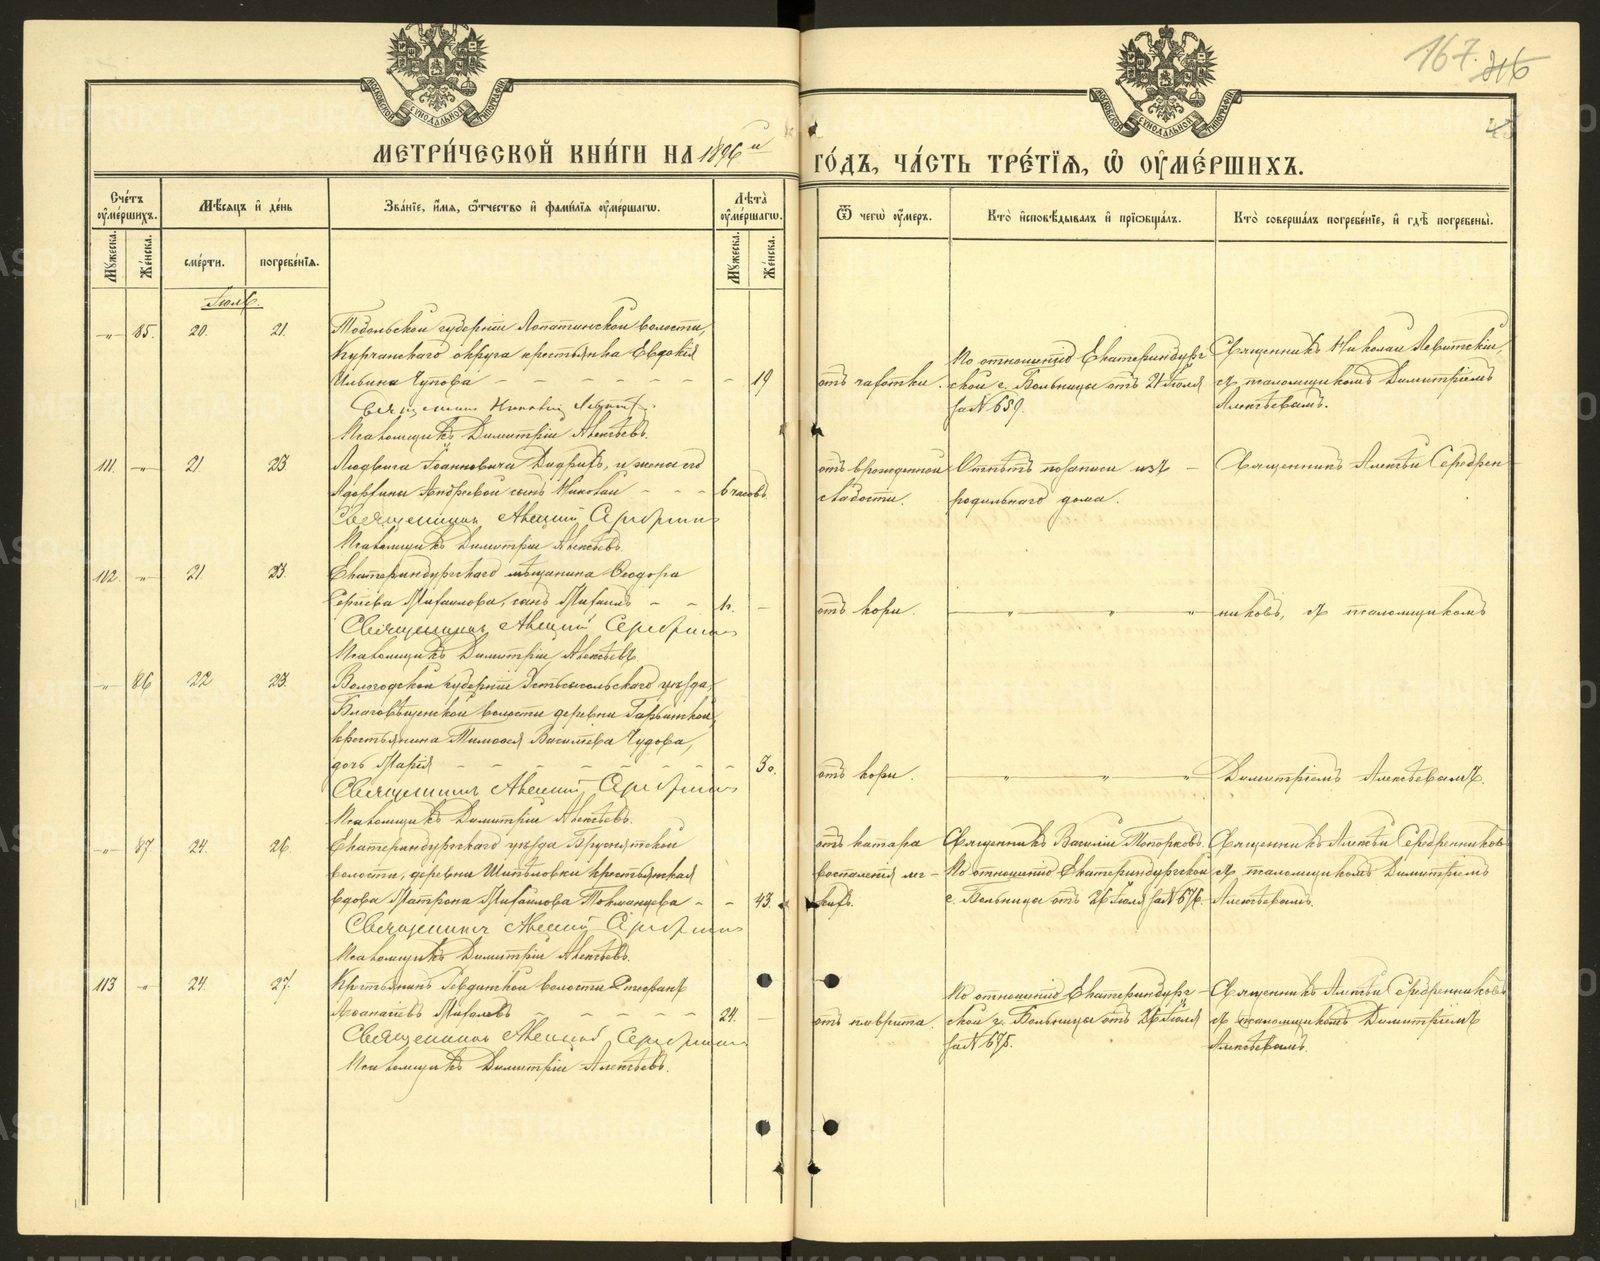 167.
МОСКОВСКОЙ СѴНОДАЛЬНОЙ ТИПОГРАФІИ
МОСКОВСКОЙ СѴНОДАЛЬНОЙ ТИПОГРАФІИ
МЕТРИ́ЧЕСКОЙ КНИ́ГИ НА 1896й ГО́ДЪ, ЧА́СТЬ ТРЕ́ТЇѦ, Ѽ ОУ҆МЕ́РШИХЪ.
Сче́тъ оу҆ме́ршихъ.
Мѣ́сѧцъ и҆ де́нь
Зва́нїе, и҆́мѧ, ѻ҆́тчество и҆ фами́лїѧ оу҆ме́ршагѡ.
Лѣ́та оу҆ме́ршагѡ.
Ѿ чегѡ̀ оу҆́меръ.
Кто̀ и҆сповѣ́дывалъ и҆ прїѡбща́лъ.
Кто̀ соверша́лъ погребе́нїе, и҆ гдѣ̀ погребены̀.
Мꙋ́жеска.
Же́нска.
сме́рти.
погребе́нїѧ.
Мꙋ́жеска.
Же́нска.
Іюль.
-"- 85. 20. 21. Тобольской губерніи Лопатинской волости,
Курганскаго округа крестьянка Евдокія
Ильина Чупова - - - - - - - - 19
Священникъ Николай Левитскій.
Псаломщикъ Димитрій Алексѣевъ.
отъ чахотки.
По отношенію Екатеринбург
ской г. Больницы отъ 21 Іюля
за N 659.
Священникъ Николай Левитскій,
съ псаломщикомъ Димитріемъ
Алексѣевымъ.
111. -"- 21. 23 Людвига Іоанновича Дидрихъ, и жены его
Андреевой сынъ Николай - - - 6 часовъ
Священникъ Алексій Серебрен
Псаломщикъ Димитрій Алексѣевъ.
отъ врожденной
слабости.
Отпѣтъ по записи изъ -
родильнаго дома.
Священникъ Алексѣй Серебрен-
112. -"- 21. 23. Екатеринбургскаго мѣщанина Ѳеодора
Сергіева Михаилова, сынъ Михаилъ - -
Священникъ Алексій Серебрен
Псаломщикъ Димитрій Алексѣевъ
отъ кори.
" " "
никовъ, съ псаломщикомъ
-"- 86 22 23. Вологодской губерніи Устьсысольскаго уѣзда,
Благовѣщенской волости деревни
крестьянина Тимоѳея Василіева Чудова,
дочь Марія - - - - - - - -
Священникъ Алексій Серебрен
Псаломщикъ Димитрій Алексѣевъ.
отъ кори.
" " "
Димитріемъ Алексѣевымъ.
-"- 87. 24. 26. Екатеринбургскаго уѣзда Бруснятской
волости, деревни Шипѣловки крестьянская
вдова Матрона Михаилова Токманцева - - 43.
Священникъ Алексій Серебрен
Псаломщикъ Димитрій Алексѣевъ.
отъ катара
воспаленія лег-
кихъ.
Священникъ Василій Топорковъ.
По отношенію Екатеринбургской
г. Больницы отъ 26 Іюля за N 676.
Священникъ Алексѣй Серебренниковъ
съ псаломщикомъ Димитріемъ
Алексѣевымъ.
113 -"- 24. 27. Крестьянинъ Ревдинской волости Стефанъ
Аѳанасіевъ - - - - - 24. -
Священникъ Алексій Серебрен
Псаломщикъ Димитрій Алексѣевъ.
отъ плеврита.
По отношенію Екатеринбург-
ской г. Больницы отъ 26 Іюля
за N 675.
Священникъ Алексѣй Серебренниковъ
съ псаломщикомъ Димитріемъ
Алексѣевымъ.
METRIKI.GASO-URAL.RU